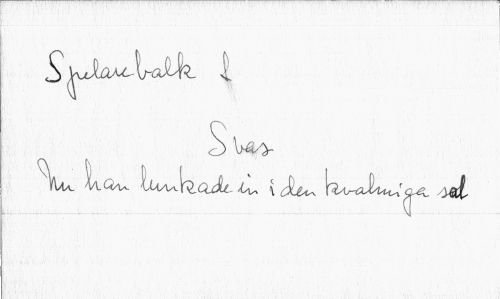 Spelarebalk f
Svas
Nu han lunkade in i den kvalmiga sal